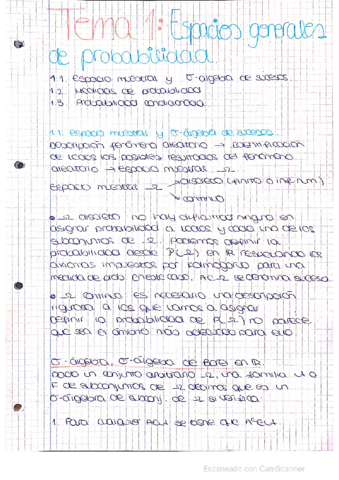 Tema 1: Espacios generales
de probabilidad.
1.1. Espacio muestral y σ-álgebra de sucesos.
1.2. Medidas de probabilidad
1.3. Probabilidad condicionada.
1.1. Espacio muestral y σ-álgebra de sucesos.
Descripción fenómeno aleatorio → identificación
de todos los posibles resultados del fenómeno
aleatorio → Espacio muestral Ω
Espacio muestral Ω → discreto (finito o inf. num)
→ continuo
• Ω discreto no hay dificultad ninguna en
asignar probabilidad a todos y cada uno de los
subconjuntos de Ω. Podemos definir la
probabilidad desde P(Ω) en ℝ respetando los
axiomas impuestos por Kolmogorov para una
medida de prob. En este caso, A⊂Ω se denomina suceso.
• Ω continuo es necesario una descripción
rigurosa a los que vamos a asignar
definir la probabilidad de P(Ω) no parece
que sea el ámbito más adecuado para ello.
σ-álgebra, σ-álgebra de Borel en ℝ.
Dado un conjunto arbitrario Ω, una familia
F de subconjuntos de Ω decimos que es un
σ-álgebra de subconj. de Ω si verifica:
1. Para cualquier A∈ se tiene que
Escaneado con CamScanner